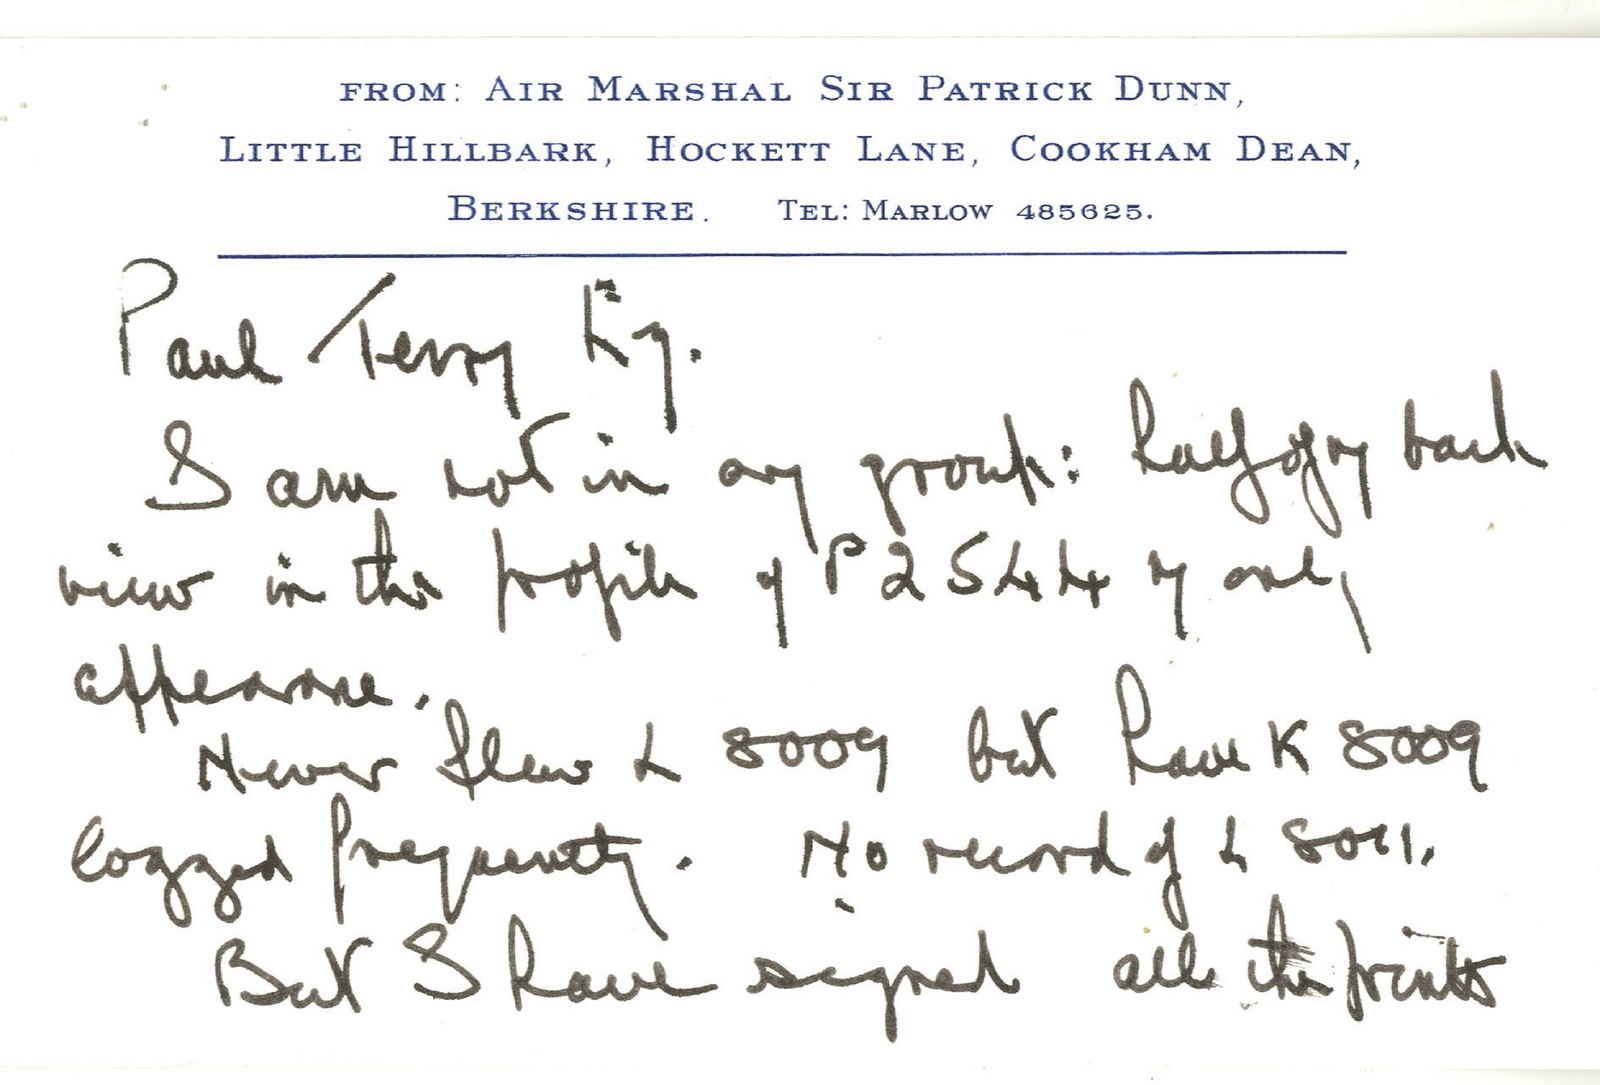 FROM: AIR MARSHAL SIR PATRICK DUNN,
LITTLE HILLBARK, HOCKETT LANE, COOKHAM DEAN,
BERKSHIRE. TEL: MARLOW 485625.
Paul Terry Esq.
I am not in any group: half of my back
view in the profile of P2544 my only
appearance.
Never flew L 8009 but have K 8009
logged frequently. No record of L 8011.
But I have signed all the prints